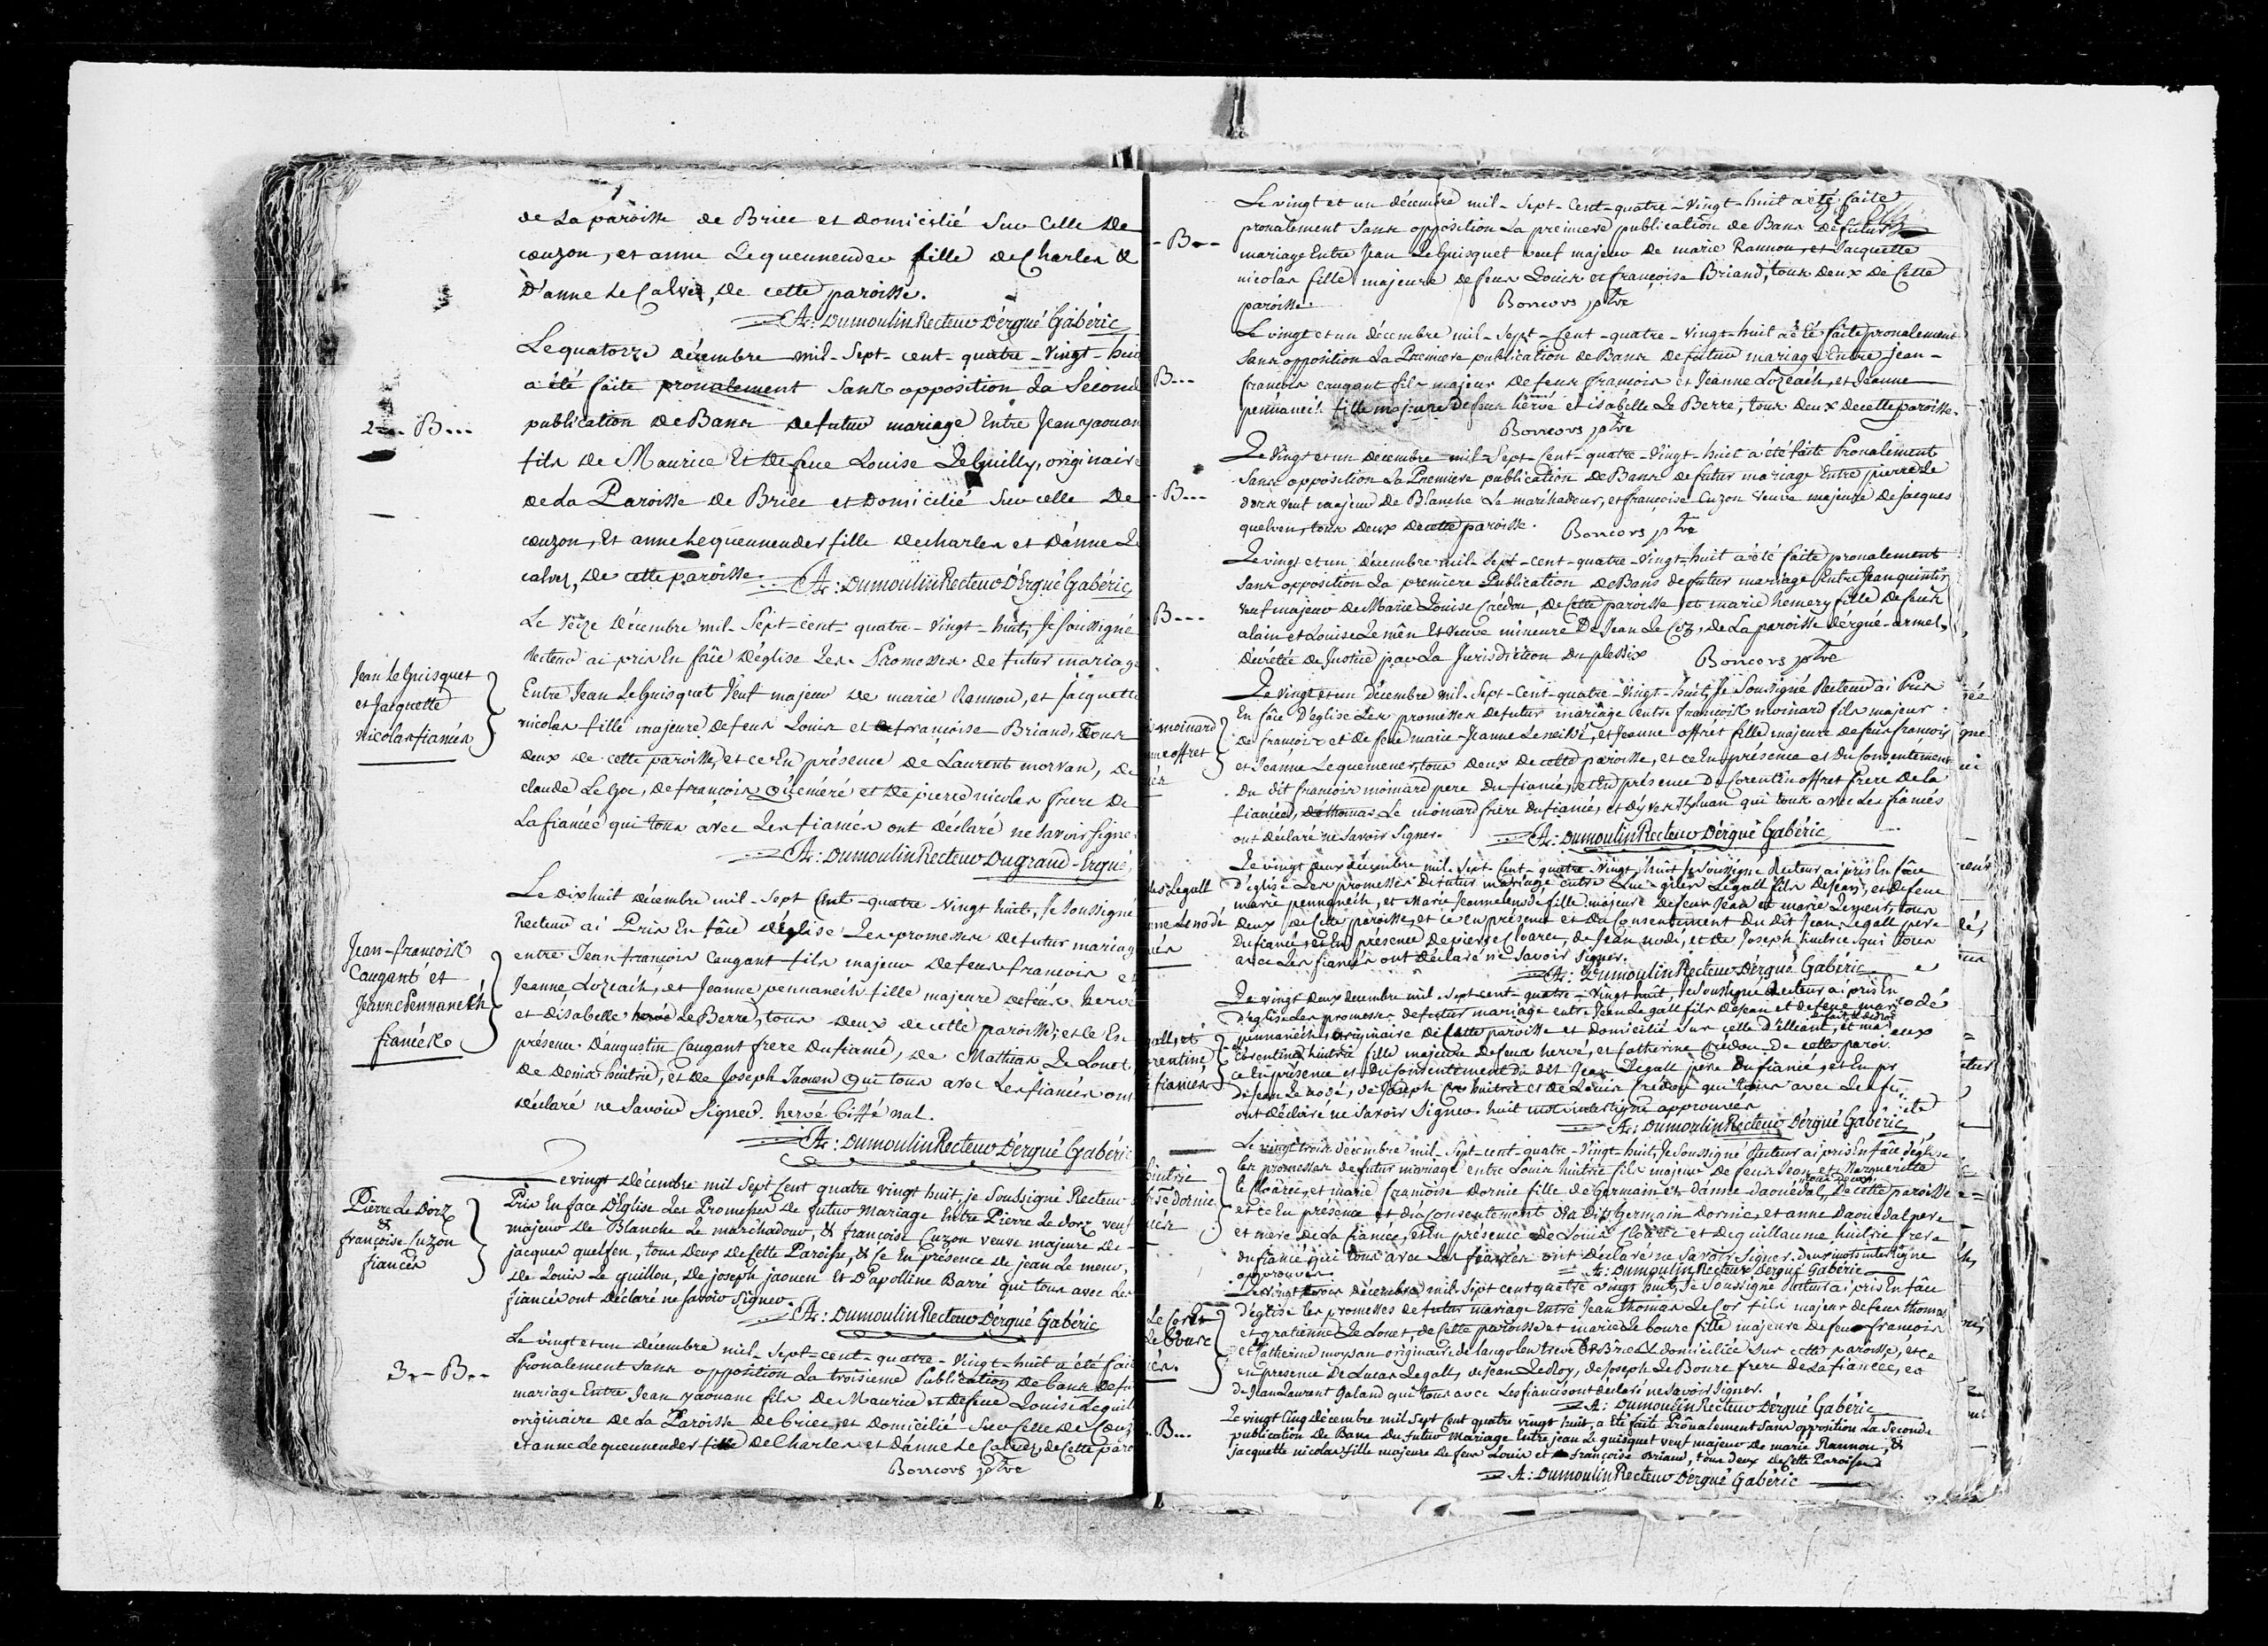 de la paroisse de Briec et domicilié sur celle de
cœuzon, et anne Lequennender fille de Charles &
D'anne Le Calvez, de cette paroisse.
A: Dumoulin Recteur D'ergué Gabéric
Le quatorze décembre mil-Sept-cent-quatre-Vingt-huit
a été faite pronalement sans opposition la Seconde
2.. B...
publication de Bans de futur mariage Entre Jean yaouanc
fils de Maurice Et de feue Louise Le Guilly, originaire
de la Paroisse de Briec et domicilié sur celle de
cœuzon, Et anne Lequennender fille de charles et d'anne Le
calvez, de cette paroisse.
A: Dumoulin Recteur D'Ergué Gabéric
Le seize Décembre mil-Sept-cent-quatre-Vingt-huit, Je soussigné
Recteur ai pris En fâce d'église Les Promesses de futur mariage
Jean Le Guisquet
et Jacquette
nicolas fiancés
Entre Jean Le Guisquet Veuf majeur de marie Rannou, et Jacquette
nicolas fille majeure de feus Louis et françoise Briand, Tous
deux de cette paroisse, et ce En présence de Laurent morvan, de
claude Le Goc, de françois Quéméré et de pierre nicolas frere de
La fiancée qui tous avec Les fiancés ont déclaré ne savoir signer
A: Dumoulin Recteur Du grand-Ergué
Le dix huit décembre mil-Sept Cent-quatre-Vingt huit, Je soussigné
Recteur ai Pris En fâce d'église Les promesses de futur mariage
Jean-françois
Caugant et
Jeanne Pennanech
fiancés
entre Jean françois Caugant fils majeur de feus françois et
Jeanne Lozeach, et Jeanne pennanech fille majeure de feus hervé
et d'isabelle Le Berre, tous deux de cette paroisse; et ce En
présence d'augustin Caugant frere du fiancé, de Mathias Le Louet,
de Denis huitric, et de Joseph Jaouen Qui tous avec Les fiancés ont
déclaré ne Savoir Signer. hervé biffé nul.
A: Dumoulin Recteur D'ergué Gabéric
Le vingt décembre mil Sept Cent quatre vingt huit, je Soussigné Recteur ai
Pierre Le Dorz
&
françoise Cuzon
fiancés
Pris En face D'Eglise Les Promesses de futur Mariage Entre Pierre Le dorz veuf
majeur de Blanche Le marchadour, & françoise Cuzon veuve majeure de
jacques quelfen, tous deux de Cette Paroisse, & Ce En présence de jean Le meur,
de Louis Le guillou, de joseph jaouen Et D'apolline Barré qui tous avec Les
fiancés ont déclaré ne savoir signer.
A: Dumoulin Recteur D'ergué Gabéric
Le vingt et un décembre mil-Sept-cent-quatre-Vingt-huit a été faite
3.. B..
Pronalement sans opposition La troisieme Publication de bans de futur
mariage Entre Jean yaouanc fils de Maurice et de feue Louise Leguilly
originaire de la Paroisse de briec et domicilié sur Celle de Cœuz
et anne Lequennender fille de Charles et d'anne Le Calvez, de Cette paro
Boricors ptre
Le vingt et un décembre mil-Sept-Cent-quatre-Vingt-huit a été faite
- B..-
pronalement sans opposition La premiere publication de Bans de futur
mariage Entre Jean Le Guisquet veuf majeur de marie Rannou, et Jacquette
nicolas fille majeure de feus Louis et françoise Briand, tous deux de Cette
paroisse. Boricors ptre
Le vingt et un décembre mil-Sept-Cent-quatre-Vingt-huit a été faite pronalement
sans opposition La Premiere publication de Bans de futur mariage Entre jean-
B...
françois caugant fils majeur de feus françois et Jeanne Lozeach, et Jeanne
pennanech fille majeure de feus hervé et isabelle Le Berre, tous deux de cette paroisse.
Boricors ptre
Le vingt et un décembre mil-Sept-Cent-quatre-Vingt-huit a été faite Pronalement
sans opposition La Premiere publication de Bans de futur mariage Entre pierre Le
- B...
dorz veuf majeur de Blanche Le marchadour, et françoise Cuzon veuve majeure de jacques
quelven, tous deux de cette paroisse. Boricors ptre
Le vingt et un décembre mil-Sept-cent-quatre-Vingt-huit a été faite pronalement
sans opposition La premiere Publication de Bans de futur mariage Entre Jean quintin
B...
veuf majeur de Marie Louise Crédou, de Cette paroisse et marie hemery fille de feus
alain et Louise Le mên Et veuve mineure De Jean Le Coz, de La paroisse d'ergué-armel,
décrétée de Justice par La Jurisdiction du plessix Boricors ptre
Le vingt et un Décembre mil-Sept-Cent-quatre-Vingt-huit, Je Soussigné Recteur ai Pris
En fâce D'église Les promesses de futur mariage entre françois moinard fils majeur
moinard
offret
de françois et de feue marie-Jeanne , et Jeanne offret fille majeure de feus françois
et Jeanne Le quemener, tous deux de cette paroisse, et ce En présence et du Consentement
du dit françois moinard pere du fiancé, et En présence de Corentin offret frere de la
fiancée, de thomas Le moinard frere du fiancé, et d'yves qui tous avec Les fiancés
ont déclaré ne Savoir Signer. A: Dumoulin Recteur D'ergué Gabéric
Le vingt deux décembre mil-Sept-Cent-quatre-Vingt-huit Je Soussigné Recteur ai pris En fâce
Legall
d'église Les promesses de futur mariage entre Luc-giles Legall fils de Jean, et de feue
marie pennanech, et Marie Jeanne Lenodé fille majeure de feus Jean et marie Lement, tous
Lenodé
deux de Cette paroisse, et ce En présence et du Consentement du dit Jean Legall pere
du fiancé, et En présence de pierre Cloarec, de Jean nodé, et de Joseph huitric qui tous
avec Les fiancés ont déclaré ne Savoir Signer.
A: Dumoulin Recteur D'ergué Gabéric
Le vingt deux decembre mil-Sept-cent-quatre-Vingt huit, Je Soussigné Recteur ai pris En
d'église Les promesses de futur mariage entre Jean Legall fils de Jean et de feue mar
pennanech, originaire de Cette paroisse et domicilié sur celle d'Elliant, et ma
gall, et
corentine
fiancés
Corentine huitric fille majeure de feus hervé, et Catherine Credou de cette paroi
ce En présence et du Consentement du dit Jean Legall pere du fiancé, et En pr
de Jean Le nodé, de Joseph huitric et de Louis Crédou qui tous avec Les fi
ont déclaré ne Savoir Signer. huit mots interligne approuvés
A: Dumoulin Recteur D'ergué Gabéric
Le vingt trois décembre mil-Sept-cent-quatre-Vingt-huit, Je Soussigné Recteur ai pris En fâce d'église
Les promesses de futur mariage entre Louis huitric fils majeur de feus Jean et Marguerite
huitric
dornic
tous deux
le Cloarec, et marie françoise dornic fille de Germain et d'anne daouédal, De cette paroisse
et ce En présence et du Consentement du Dit Germain dornic, et anne daouedal pere
et mere de la fiancée, et En présence de Louis Cloarec et de guillaume huitric frere
du fiancé qui tous avec Les fiancés ont déclaré ne Savoir Signer. deux mots interligne
approuvés. A: Dumoulin Recteur D'ergué Gabéric
Le vingt trois décembre mil Sept cent quatre vingt huit, Je Soussigné Recteur ai pris En fâce
Le Cor
Le boure
d'église les promesses de futur mariage Entre Jean thomas Le Cor fils majeur de feus thomas
et gratienne Le Louet, de Cette paroisse et marie Le boure fille majeure de feu françois
et Catherine moysan originaire de Langolen treve de Briec domiciliée sur cette paroisse, et ce
en présence De Lucas Legall, de Jean Le , de Joseph Le Boure frere de la fiancée, et
de Jean Laurent Galand qui tous avec Les fiancés ont déclaré ne Savoir Signer.
A: Dumoulin Recteur D'ergué Gabéric
Le vingt Cinq décembre mil Sept Cent quatre vingt huit, a Eté faite Prônalement Sans opposition La Seconde
- B...
publication de Bans du futur Mariage Entre jean Le guisquet veuf majeur de marie Rannou, &
jacquette nicolas fille majeure de feus Louis et françoise Briand, tous deux de Cette Paroisse
A: Dumoulin Recteur D'ergué Gabéric